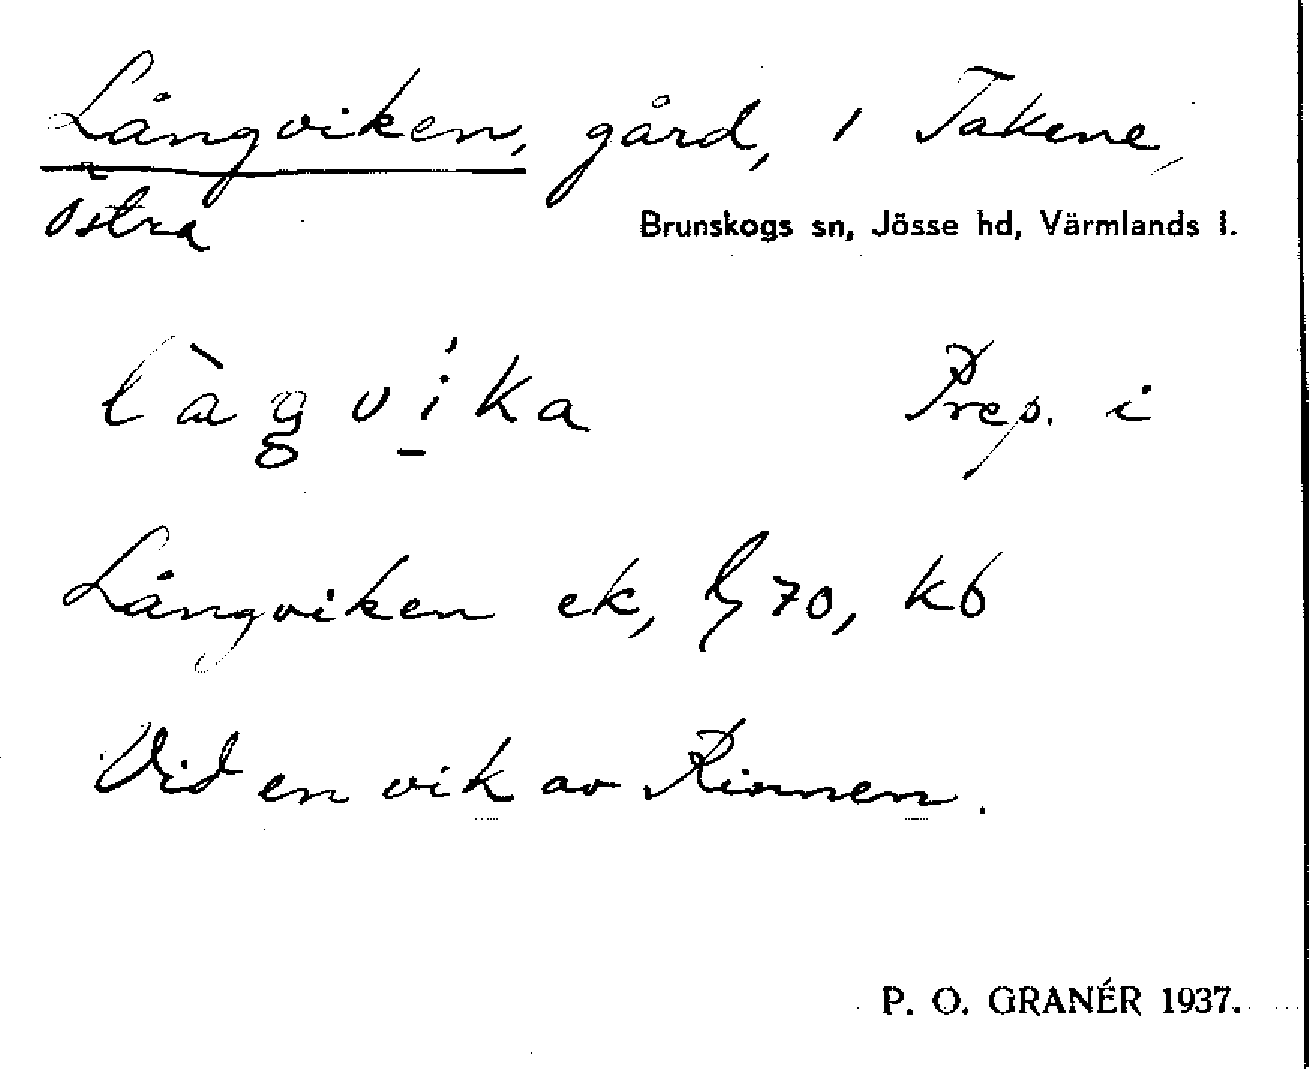 Långviken, gård, i Takene,
Östra
Brunskogs sn, Jösse hd, Värmlands l.
làgvika Prep. i
Långviken ek, 70, kb
Vid en vik av Rinnen.
P. O. GRANÉR 1937.